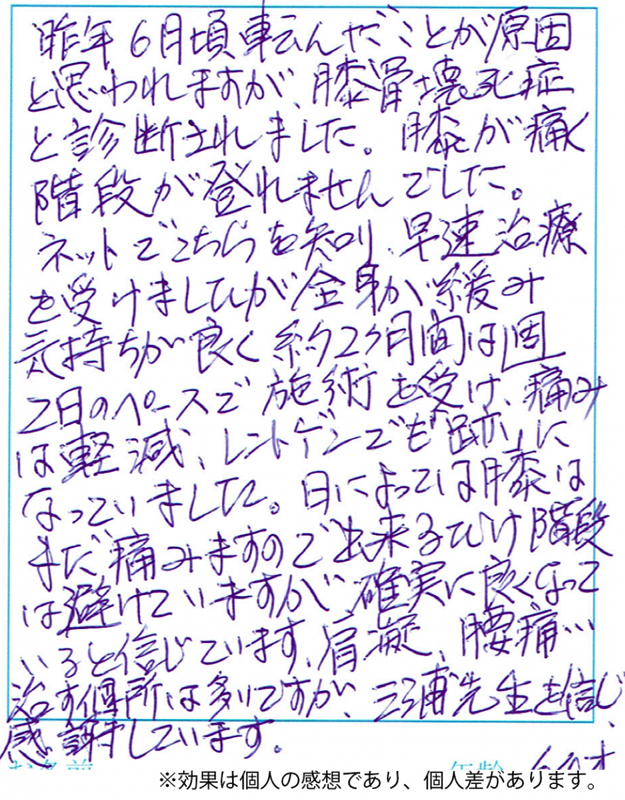 昨年6月頃転んだことが原因
と思われますが、膝骨壊死症
と診断されました。膝が痛く
階段が登れませんでした。
ネットでこちらを知り、早速治療
を受けましたが全身が緩み
気持ちが良く約2ヶ月間は週
2日のペースで施術を受け、痛み
は軽減、レントゲンでも「跡」に
なっていました。日によっては膝は
まだ痛みますので出来るだけ階段
は避けていますが、確実に良くなって
いると信じています、肩凝、腰痛…
治す個所は多いですが、三浦先生を信じ、
感謝しています。
お名前 年齢
※効果は個人の感想であり、個人差があります。